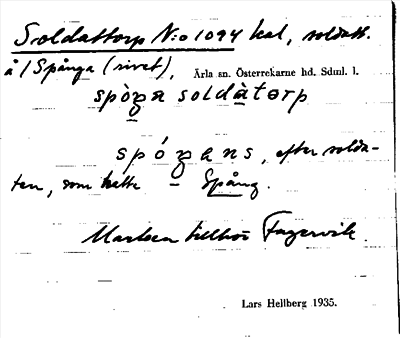 Soldattorp N:o 1094 kal, soldatt.
å / Spånga (rivet), Ärla sn. Österrekarne hd. Sdml. l.
spòŋa soldàtərp
spóŋans, efter solda-
ten, som hette – Spång.
Marken tillhör Fagervik.
Lars Hellberg 1935.